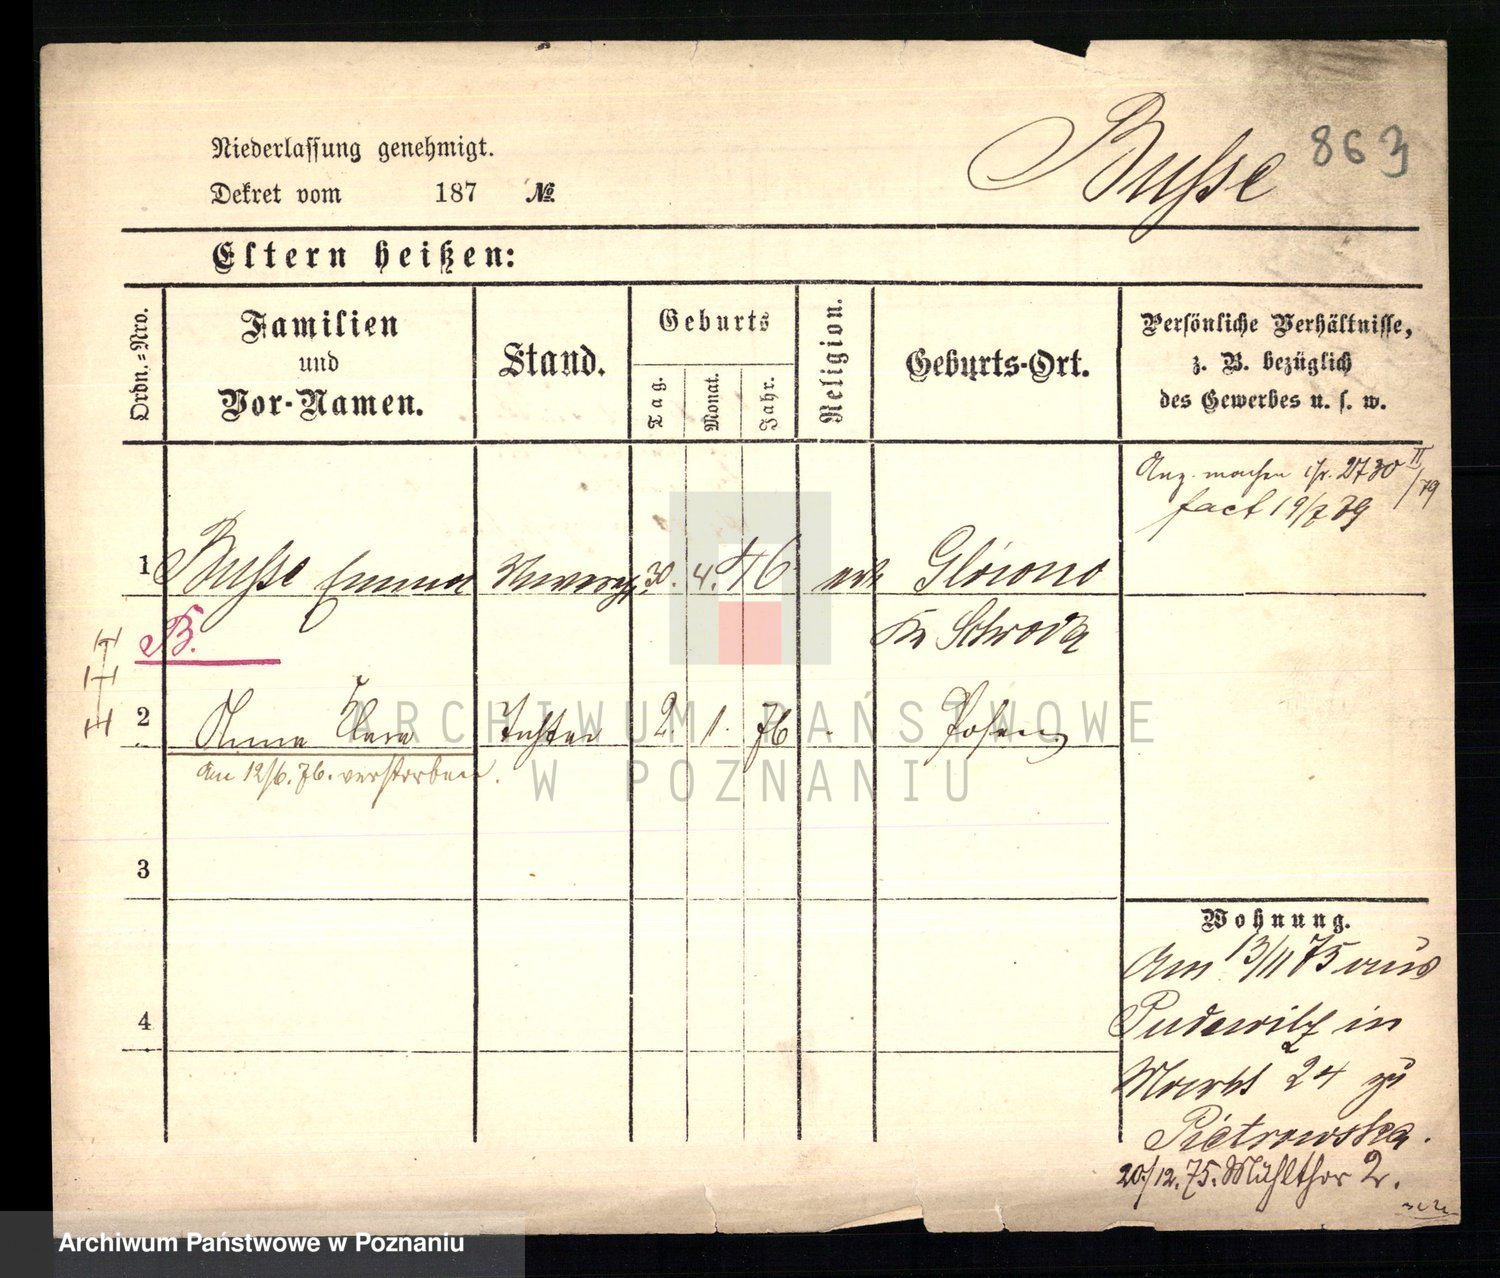 Niederlassung genehmigt.
Dekret vom 187 №
Busse 863
Eltern heißen:
Ordn.=Nro.
Familien
und
Vor-Namen.
Stand.
Geburts
Tag.
Monat.
Jahr.
Religion.
Geburts-Ort.
Persönliche Verhältnisse,
z. B. bezüglich
des Gewerbes u. s. w.
2730 II/79
fact 19/2 79
1 Busse Emma 30. 4. 46
Kr Schroda
B.
2 Anna Clara Tochter 2. 1. 76 Posen
am 12/6. 76. verstorben.
3
4
Wohnung.
Am 13/11 75 aus
Pudewitz in
Markt 24 zu
Pietrowska.
20/12. 75. Mühlthor 2.
ARCHIWUM PAŃSTWOWE
W POZNANIU
Archiwum Państwowe w Poznaniu